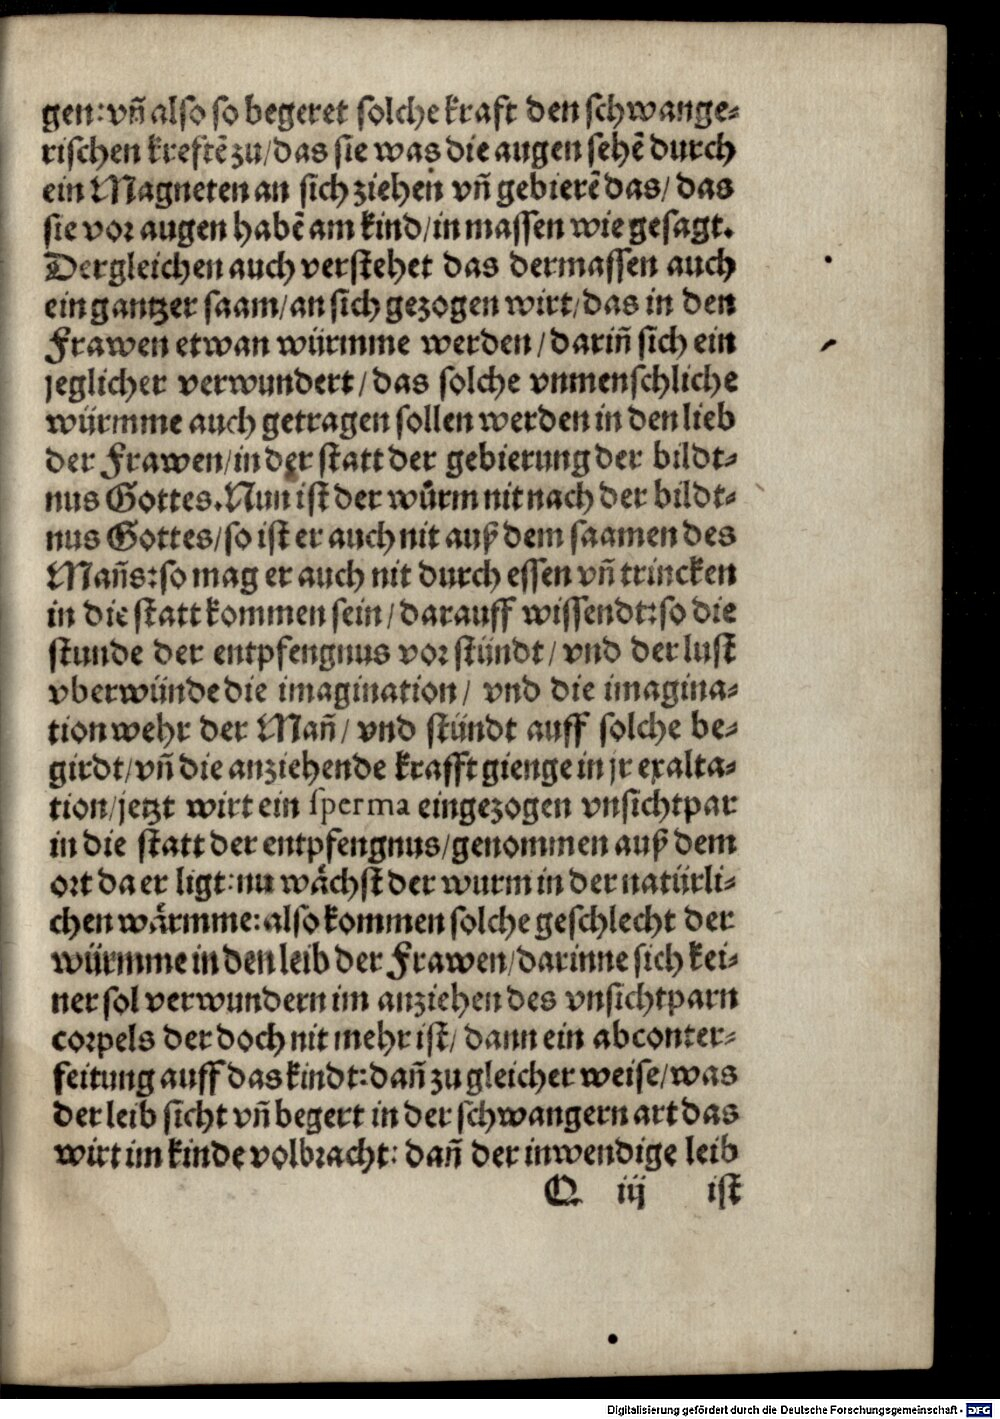 gen: vñ also so begeret solche kraft den schwange⸗
rischen kreftẽ zu/ das sie was die augen sehẽ durch
ein Magneten an sich ziehen vñ gebierẽ das/ das
sie vor augen habẽ am kind/ in massen wie gesagt.
Dergleichen auch verstehet das dermassen auch
ein gantzer saam/ an sich gezogen wirt/ das in den
Frawen etwan würmme werden/ dariñ sich ein
jeglicher verwundert/ das solche vnmenschliche
würmme auch getragen sollen werden in den lieb
der Frawen/ in der statt der gebierung der bildt⸗
nus Gottes. Nun ist der wůrm nit nach der bildt⸗
nus Gottes/ so ist er auch nit auß dem saamen des
Mañs: so mag er auch nit durch essen vñ trincken
in die statt kommen sein/ darauff wissendt: so die
stunde der entpfengnus vor stündt/ vnd der lust
vberwünde die imagination/ vnd die imagina⸗
tion wehr der Mañ/ vnd stündt auff solche be⸗
girdt/ vñ die anziehende krafft gienge in jr exalta⸗
tion/ jetzt wirt ein sperma eingezogen vnsichtpar
in die statt der entpfengnus/ genommen auß dem
ort da er ligt: nu wächst der wurm in der natürli⸗
chen wärmme: also kommen solche geschlecht der
würmme in den leib der Frawen/ darinne sich kei⸗
ner sol verwundern im anziehen des vnsichtparn
corpels der doch nit mehr ist/ dann ein abconter⸗
feitung auff das kindt: dañ zu gleicher weise/ was
der leib sicht vñ begert in der schwangern art das
wirt im kinde volbracht: dañ der inwendige leib
Q iij ist
Digitalisierung gefördert durch die Deutsche Forschungsgemeinschaft - DFG